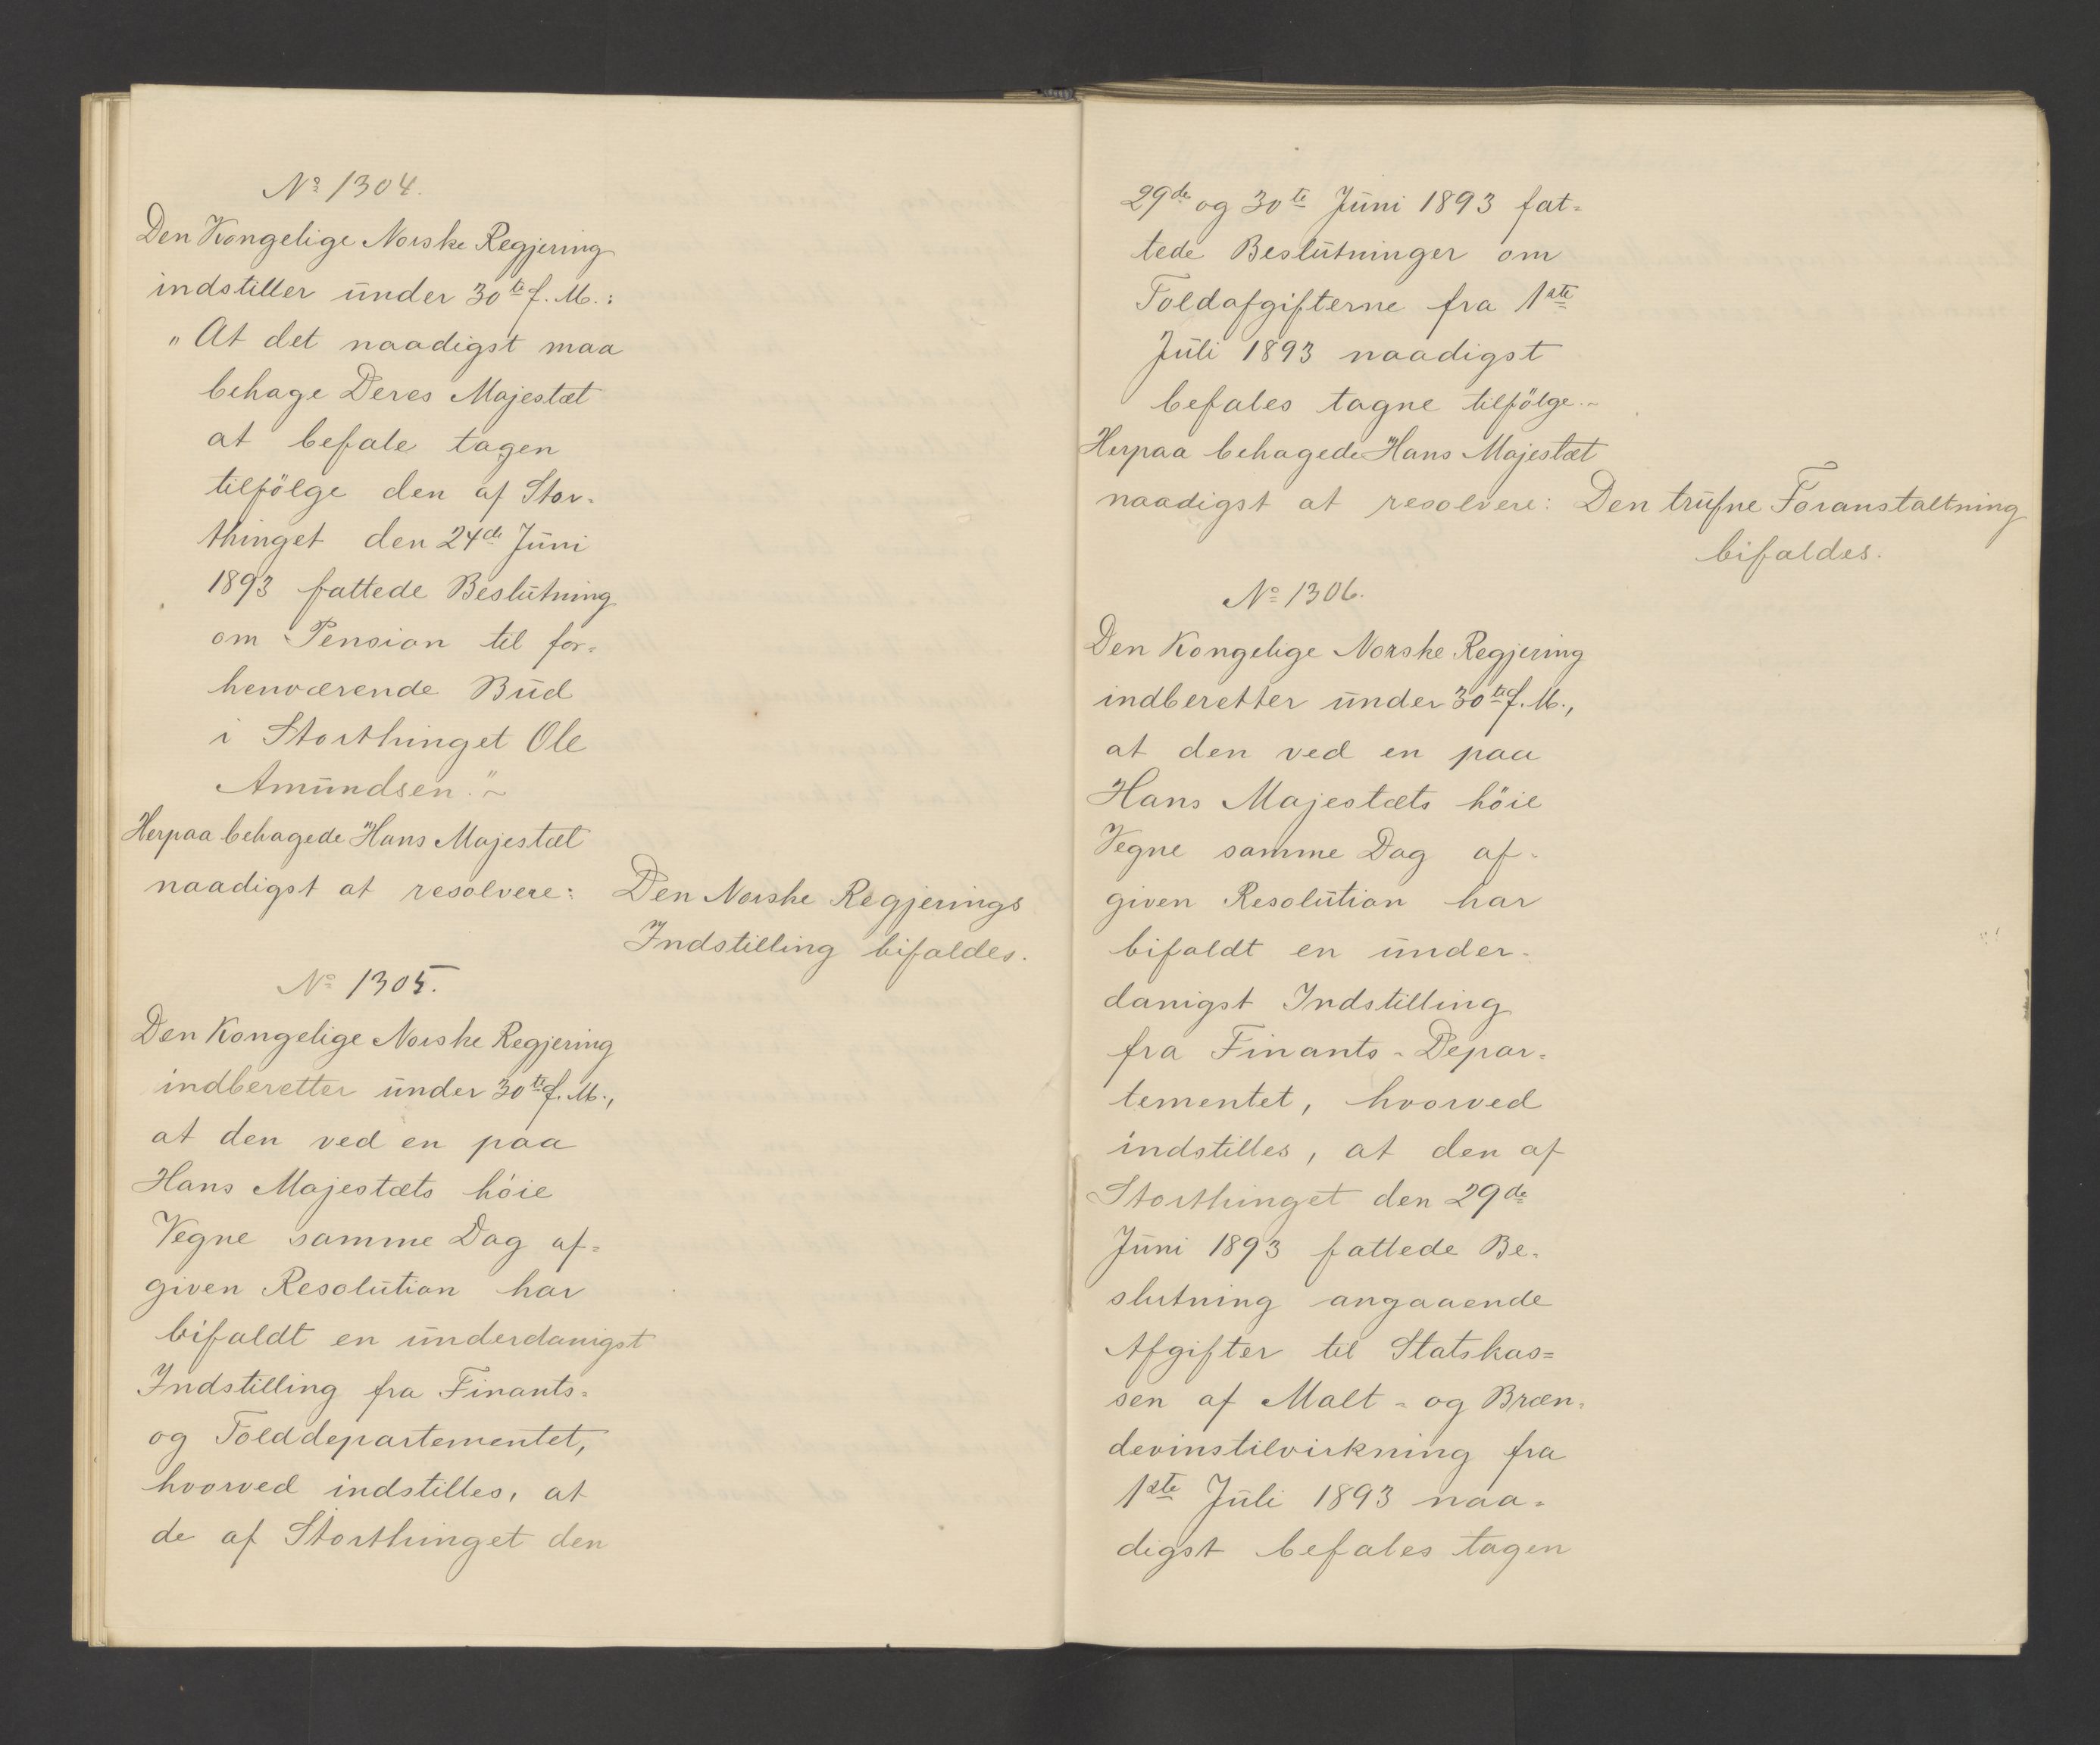 No 1304.
Den Kongelige Norske Regjering
indstiller under 30te f. M.:
"At det naadigst maa
behage Deres Majestæt
at befale tagen
tilfölge den af Stor-
thinget den 24de Juni
1893 fattede Beslutning
om Pension til for-
henværende Bud
i Storthinget Ole
Amundsen."~
Herpaa behagede Hans Majestæt
naadigst at resolvere: Den Norske Regjerings
Indstilling bifaldes.
No 1305.
Den Kongelige Norske Regjering
indberetter under 30te f. M.,
at den ved en paa
Hans Majestæts höie
Vegne samme Dag af-
given Resolution har
bifaldt en underdanigst
Indstilling fra Finants-
og Tolddepartementet,
hvorved indstilles, at
de af Storthinget den
29de og 30te Juni 1893 fat-
tede Beslutninger om
Toldafgifterne fra 1ste
Juli 1893 naadigst
befales tagne tilfölge.~
Herpaa behagede Hans Majestæt
naadigst at resolvere: Den trufne Foranstaltning
bifaldes.
No 1306.
Den Kongelige Norske Regjering
indberetter under 30te f. M.,
at den ved en paa
Hans Majestæts höie
Vegne samme Dag af-
given Resolution har
bifaldt en under-
danigst Indstilling
fra Finants-Depar-
tementet, hvorved
indstilles, at den af
Storthinget den 29de
Juni 1893 fattede Be-
slutning angaaende
Afgifter til Statskas-
sen af Malt- og Bræn-
devinstilvirkning fra
1ste Juli 1893 naa-
digst befales tagen